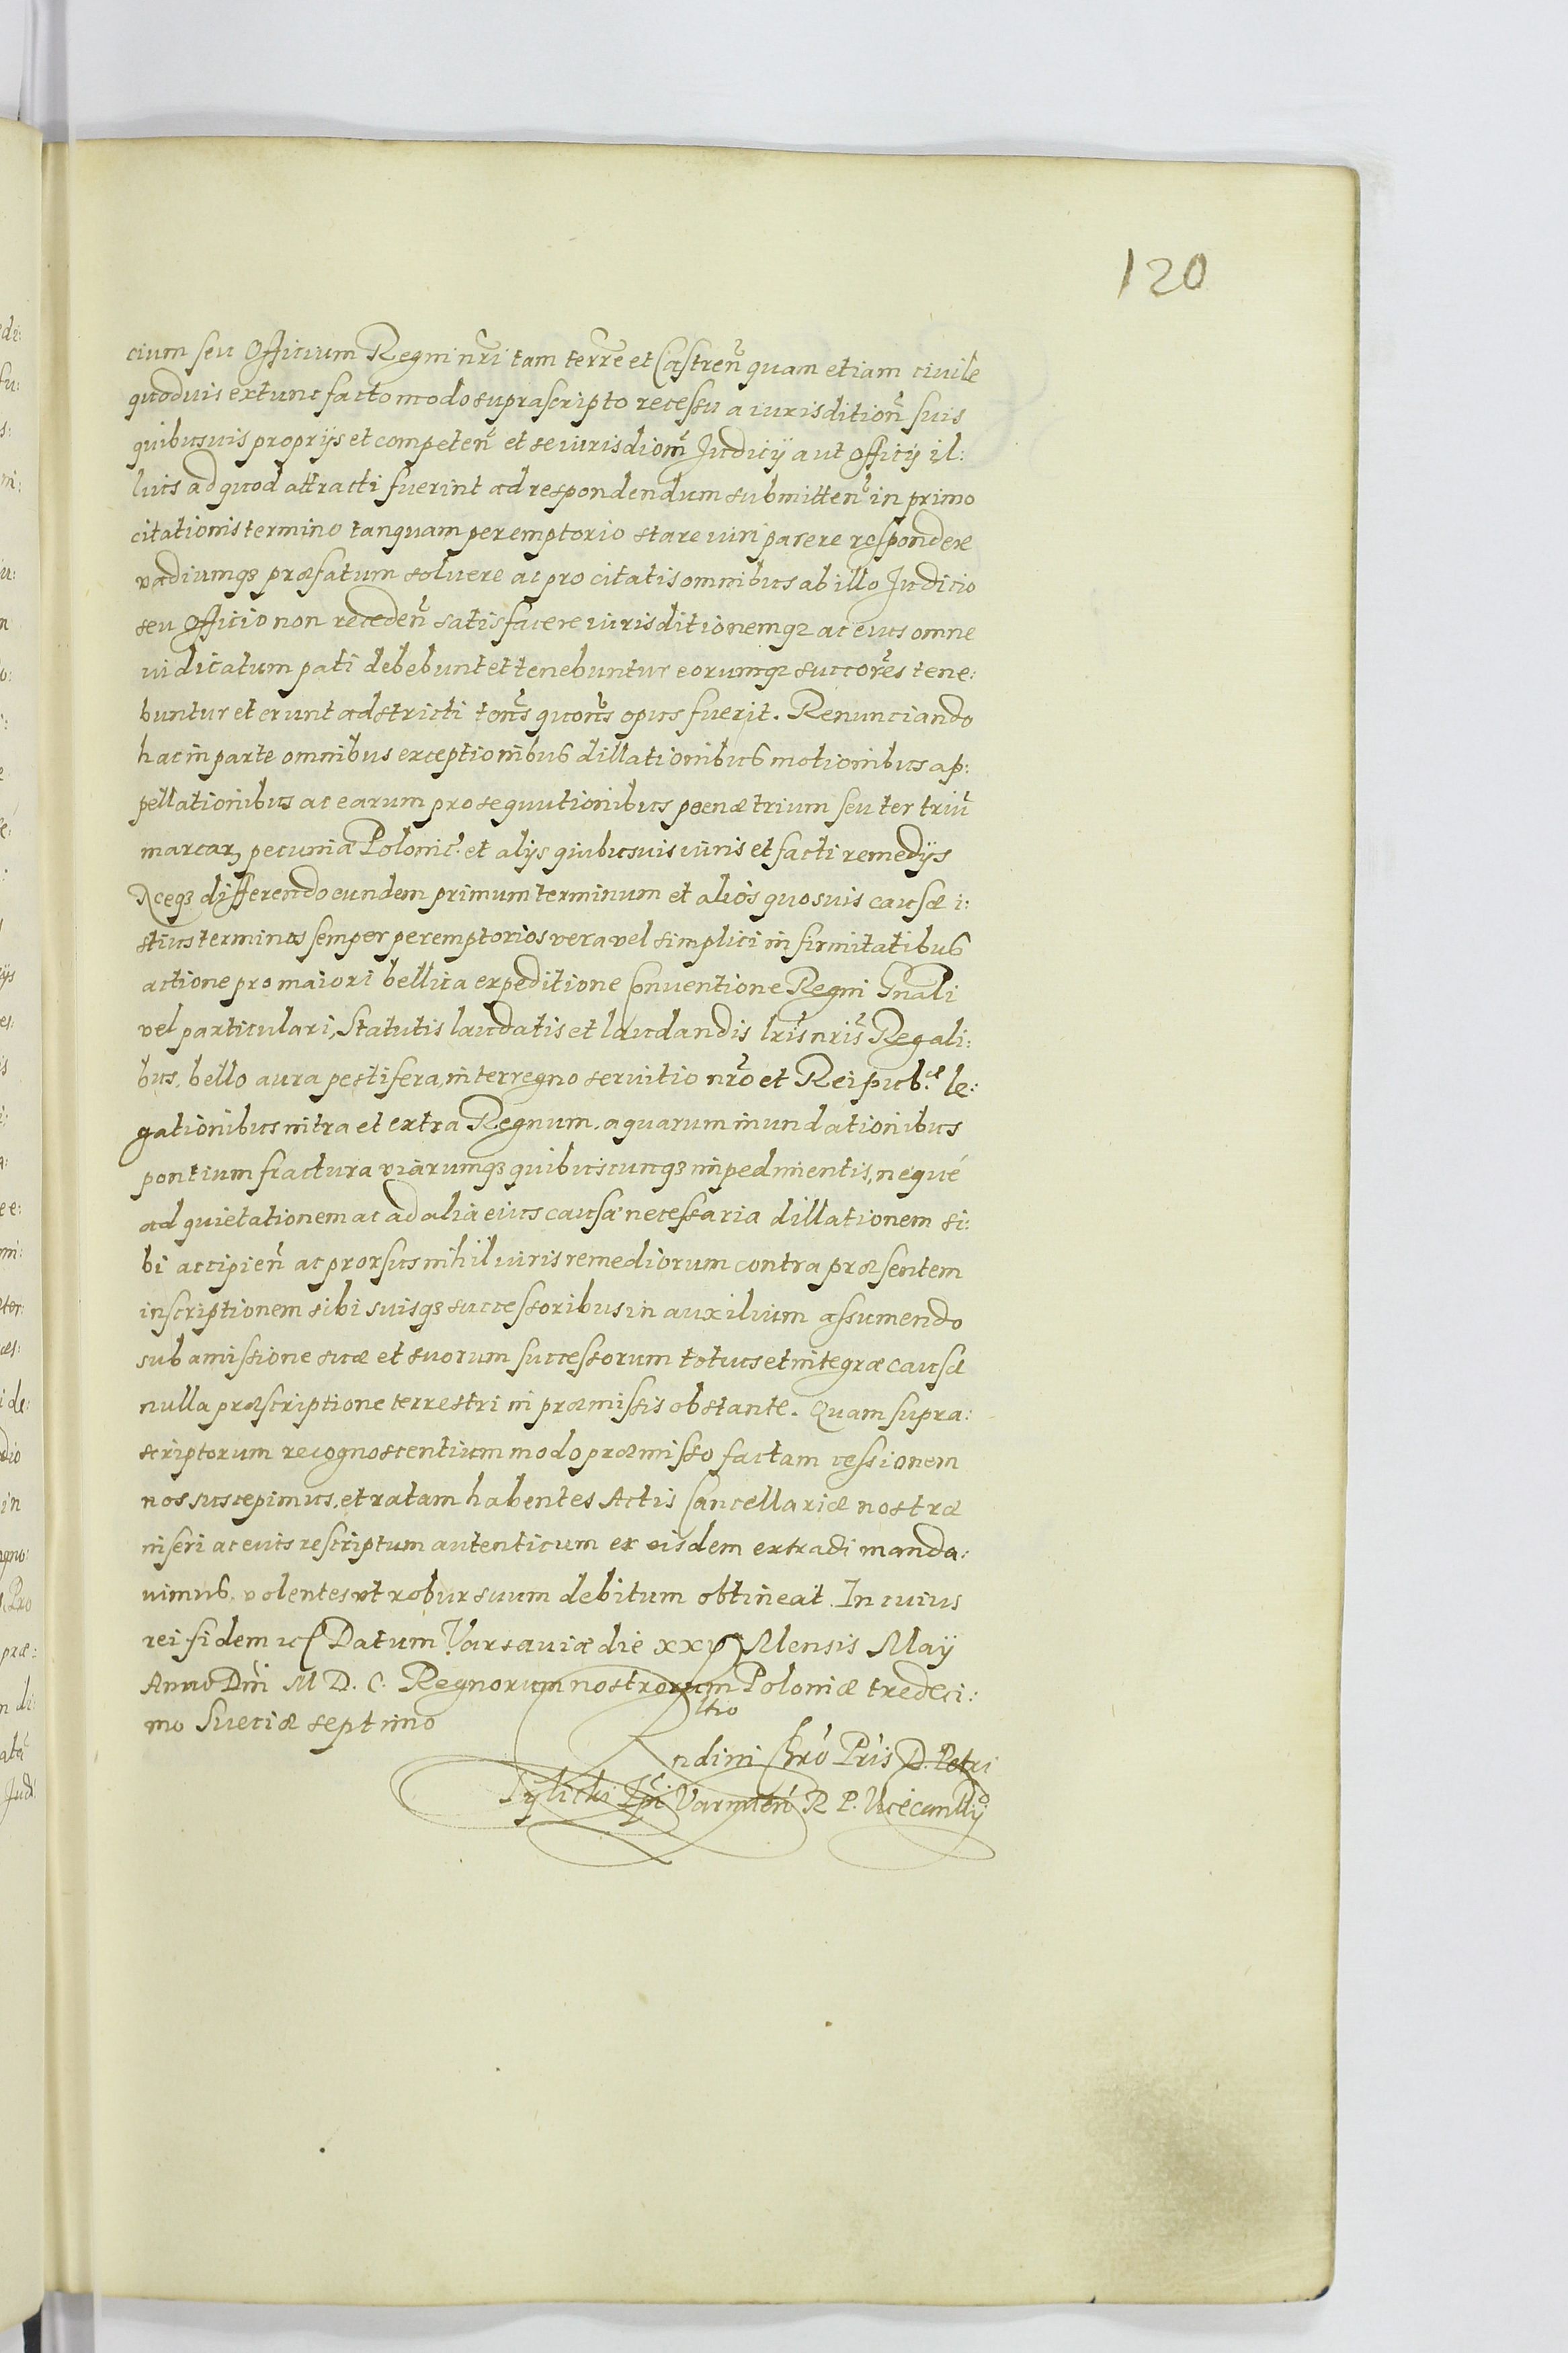 120
cium seu Officium Regni nr̃i tam terrẽ et Castreñ quam etiam ciuile
quoduis extunc facto modo suprascripto recessu a iurisditioñ suis
quibusuis proprijs et competeñ et se iurisdioñ Judicij aut Officij il:
lius ad quod attracti fuerint ad respondendum submitteñ in primo
citationis termino tanquam peremptorio stare iuri parere respondere
vadiumqꝫ præfatum soluere ac pro citatis omnibus ab illo Judicio
seu Officio non recedeñ satisfacere iurisditionemqꝫ ac eius omne
iudicatum pati debebunt et tenebuntur eorumqꝫ succor̃es tene:
buntur et erunt adstricti totñs quotñs opus fuerit. Renunciando
hac in parte omnibus exceptionibus dillationibus motionibus ap:
pellationibus ac earum prosequutionibus poenæ trium seu ter triũ
marcarꝫ pecuniæ Polonic̃. et alijs quibusuis iuris et facti remedijs
Aceqꝫ differendo eundem primum terminum et alios quosuis causæ i:
stius terminos semper peremptorios vera vel simplici infirmitatibus
actione pro maiori bellica expeditione Conuentione Regni Gnãli
vel particulari, Statutis laudatis et laudandis lr̃is nr̃is Regali:
bus, bello aura pestifera, interregno seruitio nr̃o et Reipub.cæ le:
gationibus intra et extra Regnum, aquarum inundationibus
pontium fractura viarumqꝫ quibuscunqꝫ impedimentis, nequé
ad quietationem ac ad alia eius causæ necessaria dillationem si:
bi accipieñ ac prorsus nihil iuris remediorum contra præsentem
inscriptionem sibi suisqꝫ successoribus in auxilium assumendo
sub amissione suæ et suorum successorum totius et integræ causæ
nulla præscriptione terrestri in præmissis obstante. Quam supra:
scriptorum recognoscentium modo præmisso factam cessionem
nos suscepimus, et ratam habentes Actis Cancellariæ nostræ
inseri ac eius rescriptum autenticum ex eisdem extradi manda:
uimus, volentes vt robur suum debitum obtineat. In cuius
rei fidem ꝛc Datum Varsauiæ die xxvj Mensis Maij
Anno Dñi M D. C. Regnorum nostrorum Poloniæ tredeci:
mo Sueciæ septimo
Rltio
Rndini Chrõ Pris D. Petri
Tylicki Epi Varmieñ R P. Vicecancllij